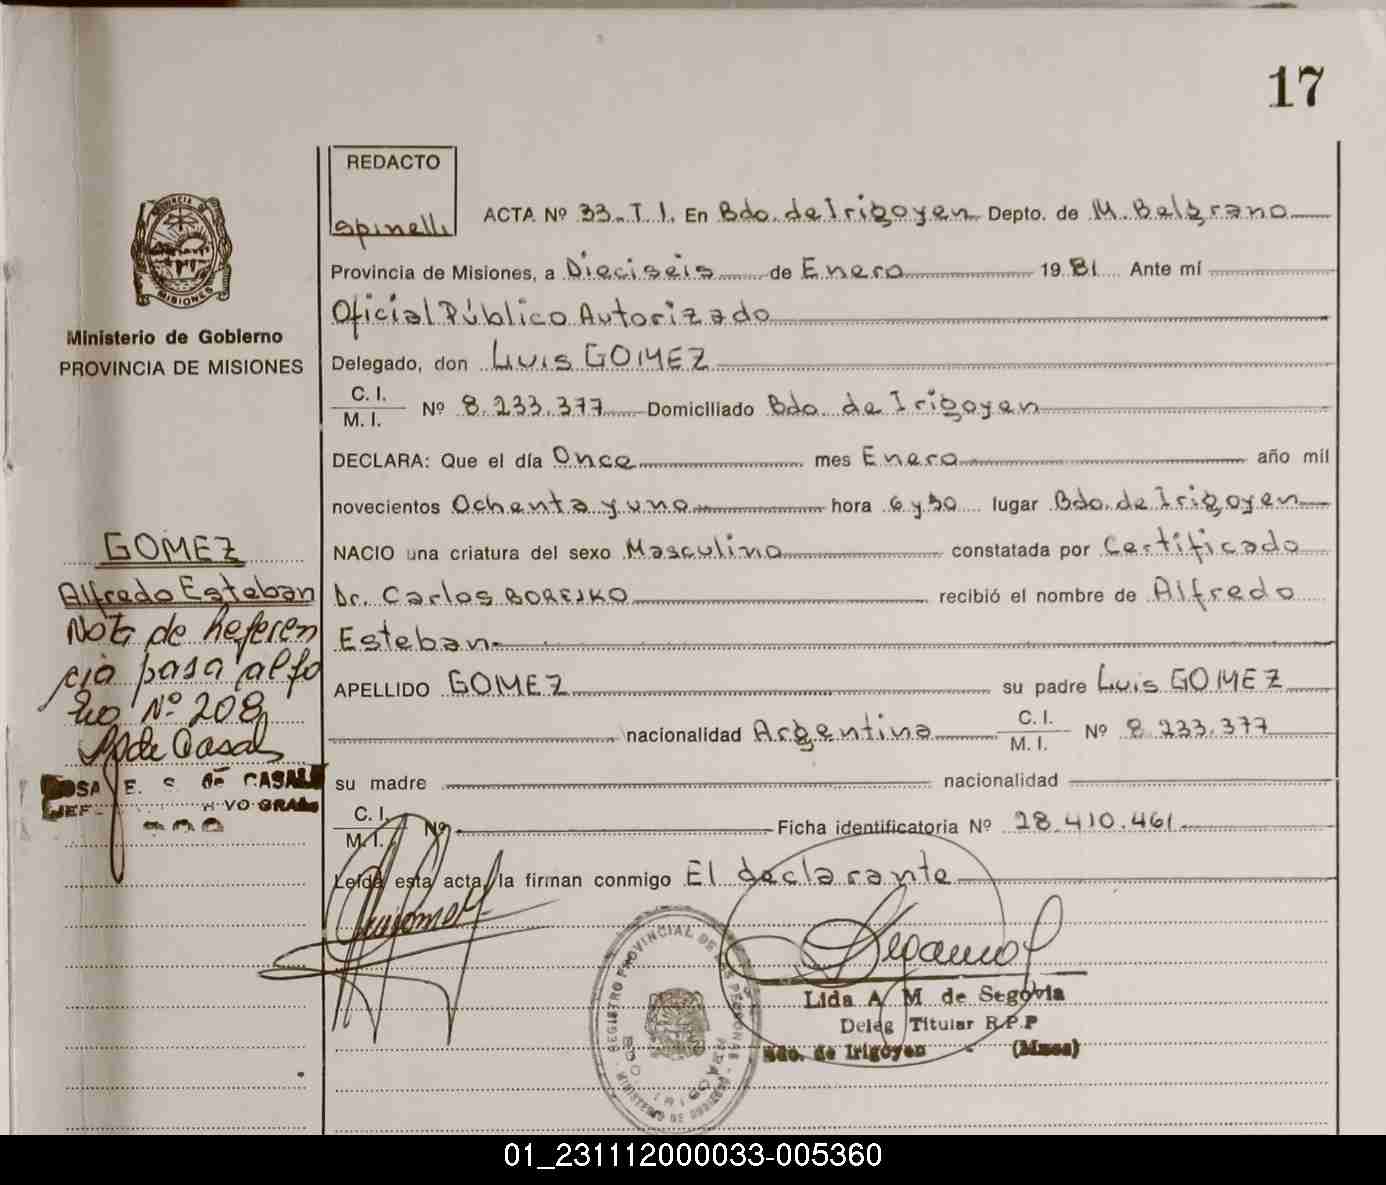 17
REDACTO
spinelli
ACTA Nº 33.T.I. En Bdo. de Irigoyen Depto. de M. Belgrano
Provincia de Misiones, a Dieciseis de Enero 1981 Ante mí
Oficial Público Autorizado
Delegado, don Luis GOMEZ
C. I.
M. I. Nº 8.233.377 Domiciliado Bdo. de Irigoyen
DECLARA: Que el día Once mes Enero año mil
novecientos Ochenta y uno hora 6 y 30 lugar Bdo. de Irigoyen
NACIO una criatura del sexo Masculino constatada por Certificado
Dr. Carlos BOREJKO recibió el nombre de Alfredo
Esteban
APELLIDO GOMEZ su padre Luis GOMEZ
nacionalidad Argentina C. I. M. I. Nº 8.233.377
su madre nacionalidad
C. I.
M. I. Nº Ficha identificatoria Nº 28.410.461
Leída esta acta, la firman conmigo El declarante
PROVINCIA DE
MISIONES
Ministerio de Gobierno
PROVINCIA DE MISIONES
GOMEZ
Alfredo Esteban
Nota de Referen
cia pasa al fo
lio Nº 208
R de Casals
ROSA E. S. de CASALS
JEF
REGISTRO PROVINCIAL DE LAS PERSONAS
Lida A M de Segovia
Deleg Titular R.P.P
Bdo. de Irigoyen - (Mnes)
01_231112000033-005360